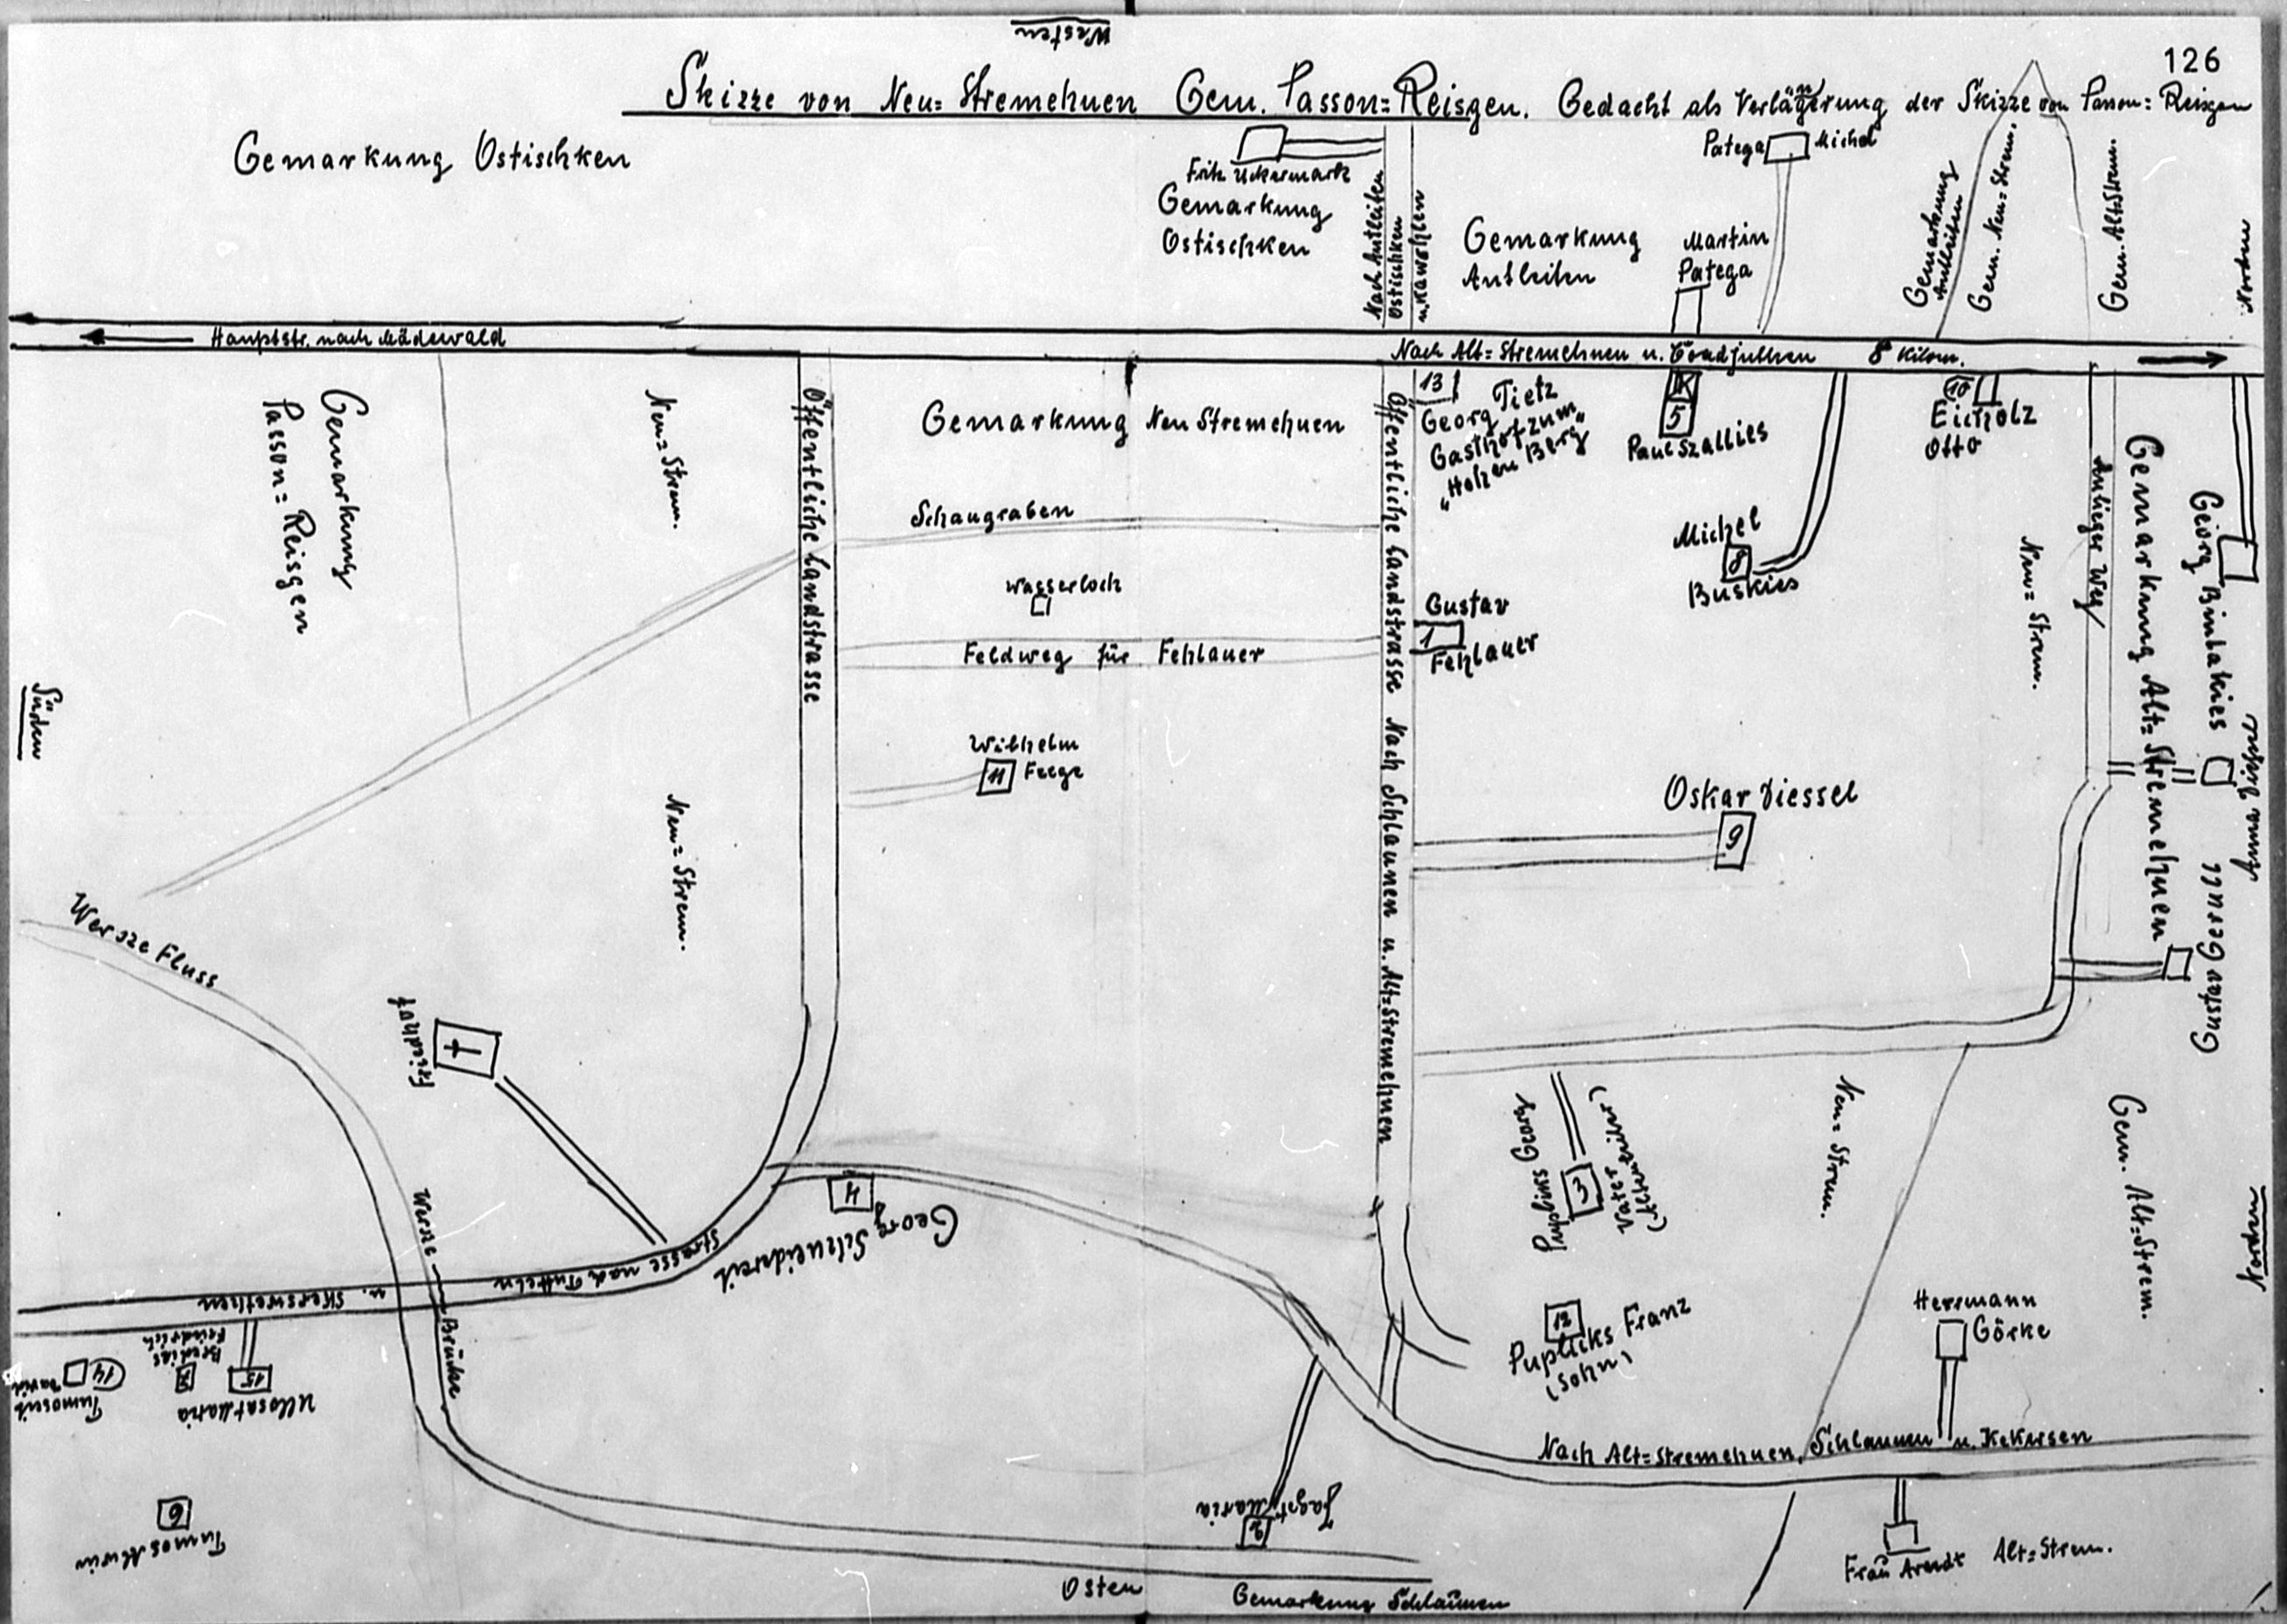 Westen
126
Skizze von Neu=Stremehnen Gem. Passon=Reisgen. Gedacht als Verlängerung der Skizze von Passon=Reisgen
Gemarkung Ostischken
Fritz Uckermark
Gemarkung
Ostischken
Nach Autleiten
Ostischken
u. Kawohlen
Patega Michel
Gemarkung
Autleiten
Martin
Patega
Gemarkung
Autleiten
Gem. Neu=Strem.
Gem. Alt=Strem.
Norden
Hauptstr. nach Mädewald
Nach Alt=Stremehnen u. Coadjuthen 8 Kilom.
Gemarkung
Passon=Reisgen
Neu=Strem.
Öffentliche Landstrasse
Gemarkung Neu Stremehnen
Öffentliche Landstrasse Nach Schlaunen u. Alt=Stremehnen
13
Georg Tietz
Gasthof zum
"Hohen Berg"
K
5
Paul Szallies
10
Eicholz
Otto
Schaugraben
Wasserloch
Feldweg für Fehlauer
Gustav
1
Fehlauer
Michel
8
Buskies
Neu=Strem.
Anlieger Weg
Gemarkung Alt=Stremehnen
Georg Bindakies
Anna Diessel
Süden
Wilhelm
11 Feege
Neu=Strem.
Oskar Diessel
9
Gustav Gerull
Wersze Fluss
Friedhof
4
Georg Schneidereit
Pupliks Georg
3
Vater
Neu=Strem.
Gem. Alt=Strem.
Norden
Wersze
Brücke
Strasse nach Tutteln
u. Skerswethen
Tumoscheit
David
14
Friedrich
15
Maria
6
12
Puplicks Franz
(Sohn)
Herrmann
Görke
Nach Alt=Stremehnen, Schlaunen u. Kekersen
Jagst Maria
2
Frau Arendt Alt=Strem.
Osten
Gemarkung Schlaunen